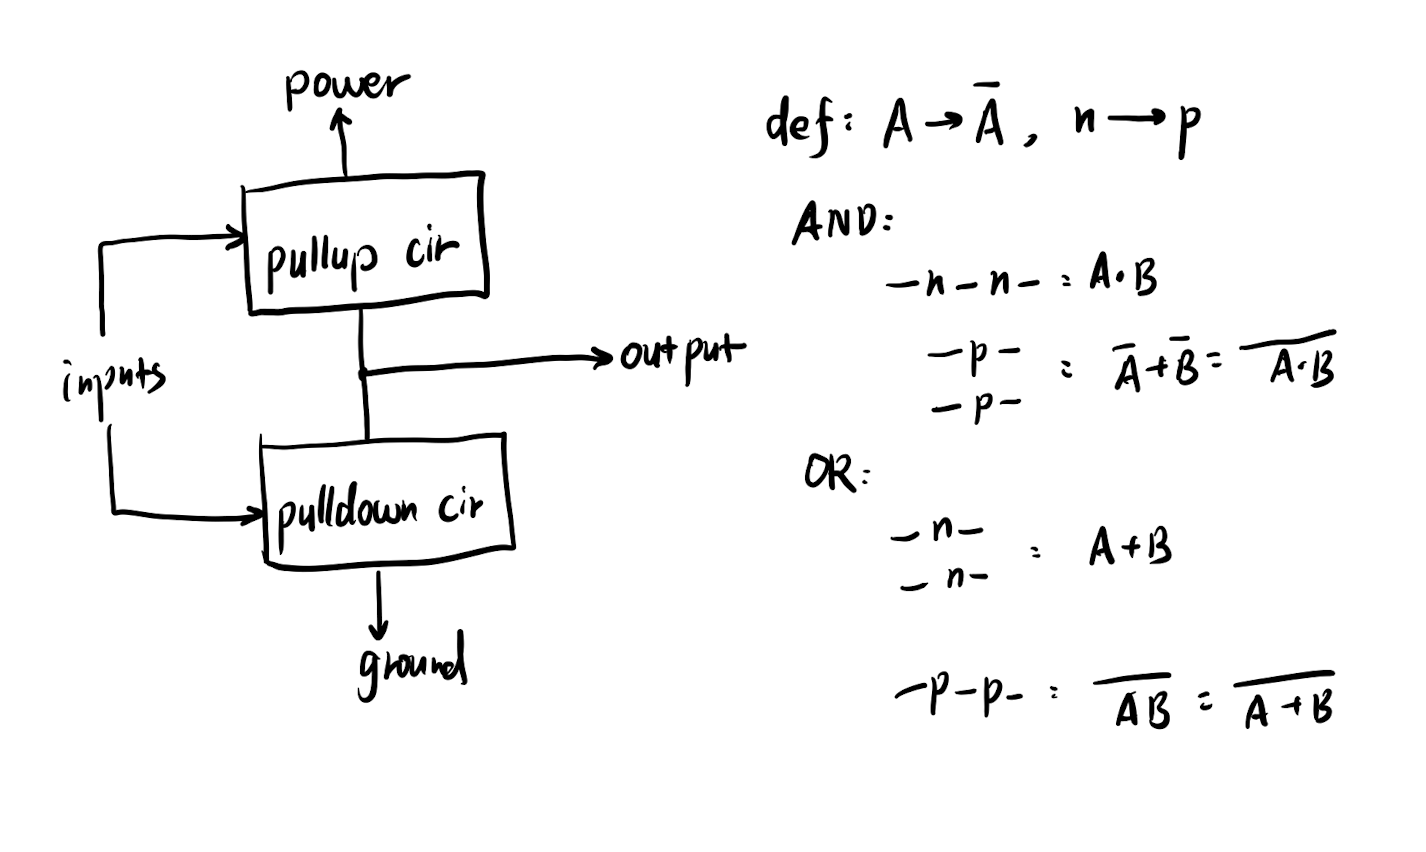 power
pullup cir
inputs
output
pulldown cir
ground
def: A → A̅ , n → p
AND:
—n–n– : A·B
—p–
—p– : A̅+B̅ = \overline{A·B}
OR:
–n–
–n– : A+B
—p–p– : \overline{AB} = \overline{A+B}